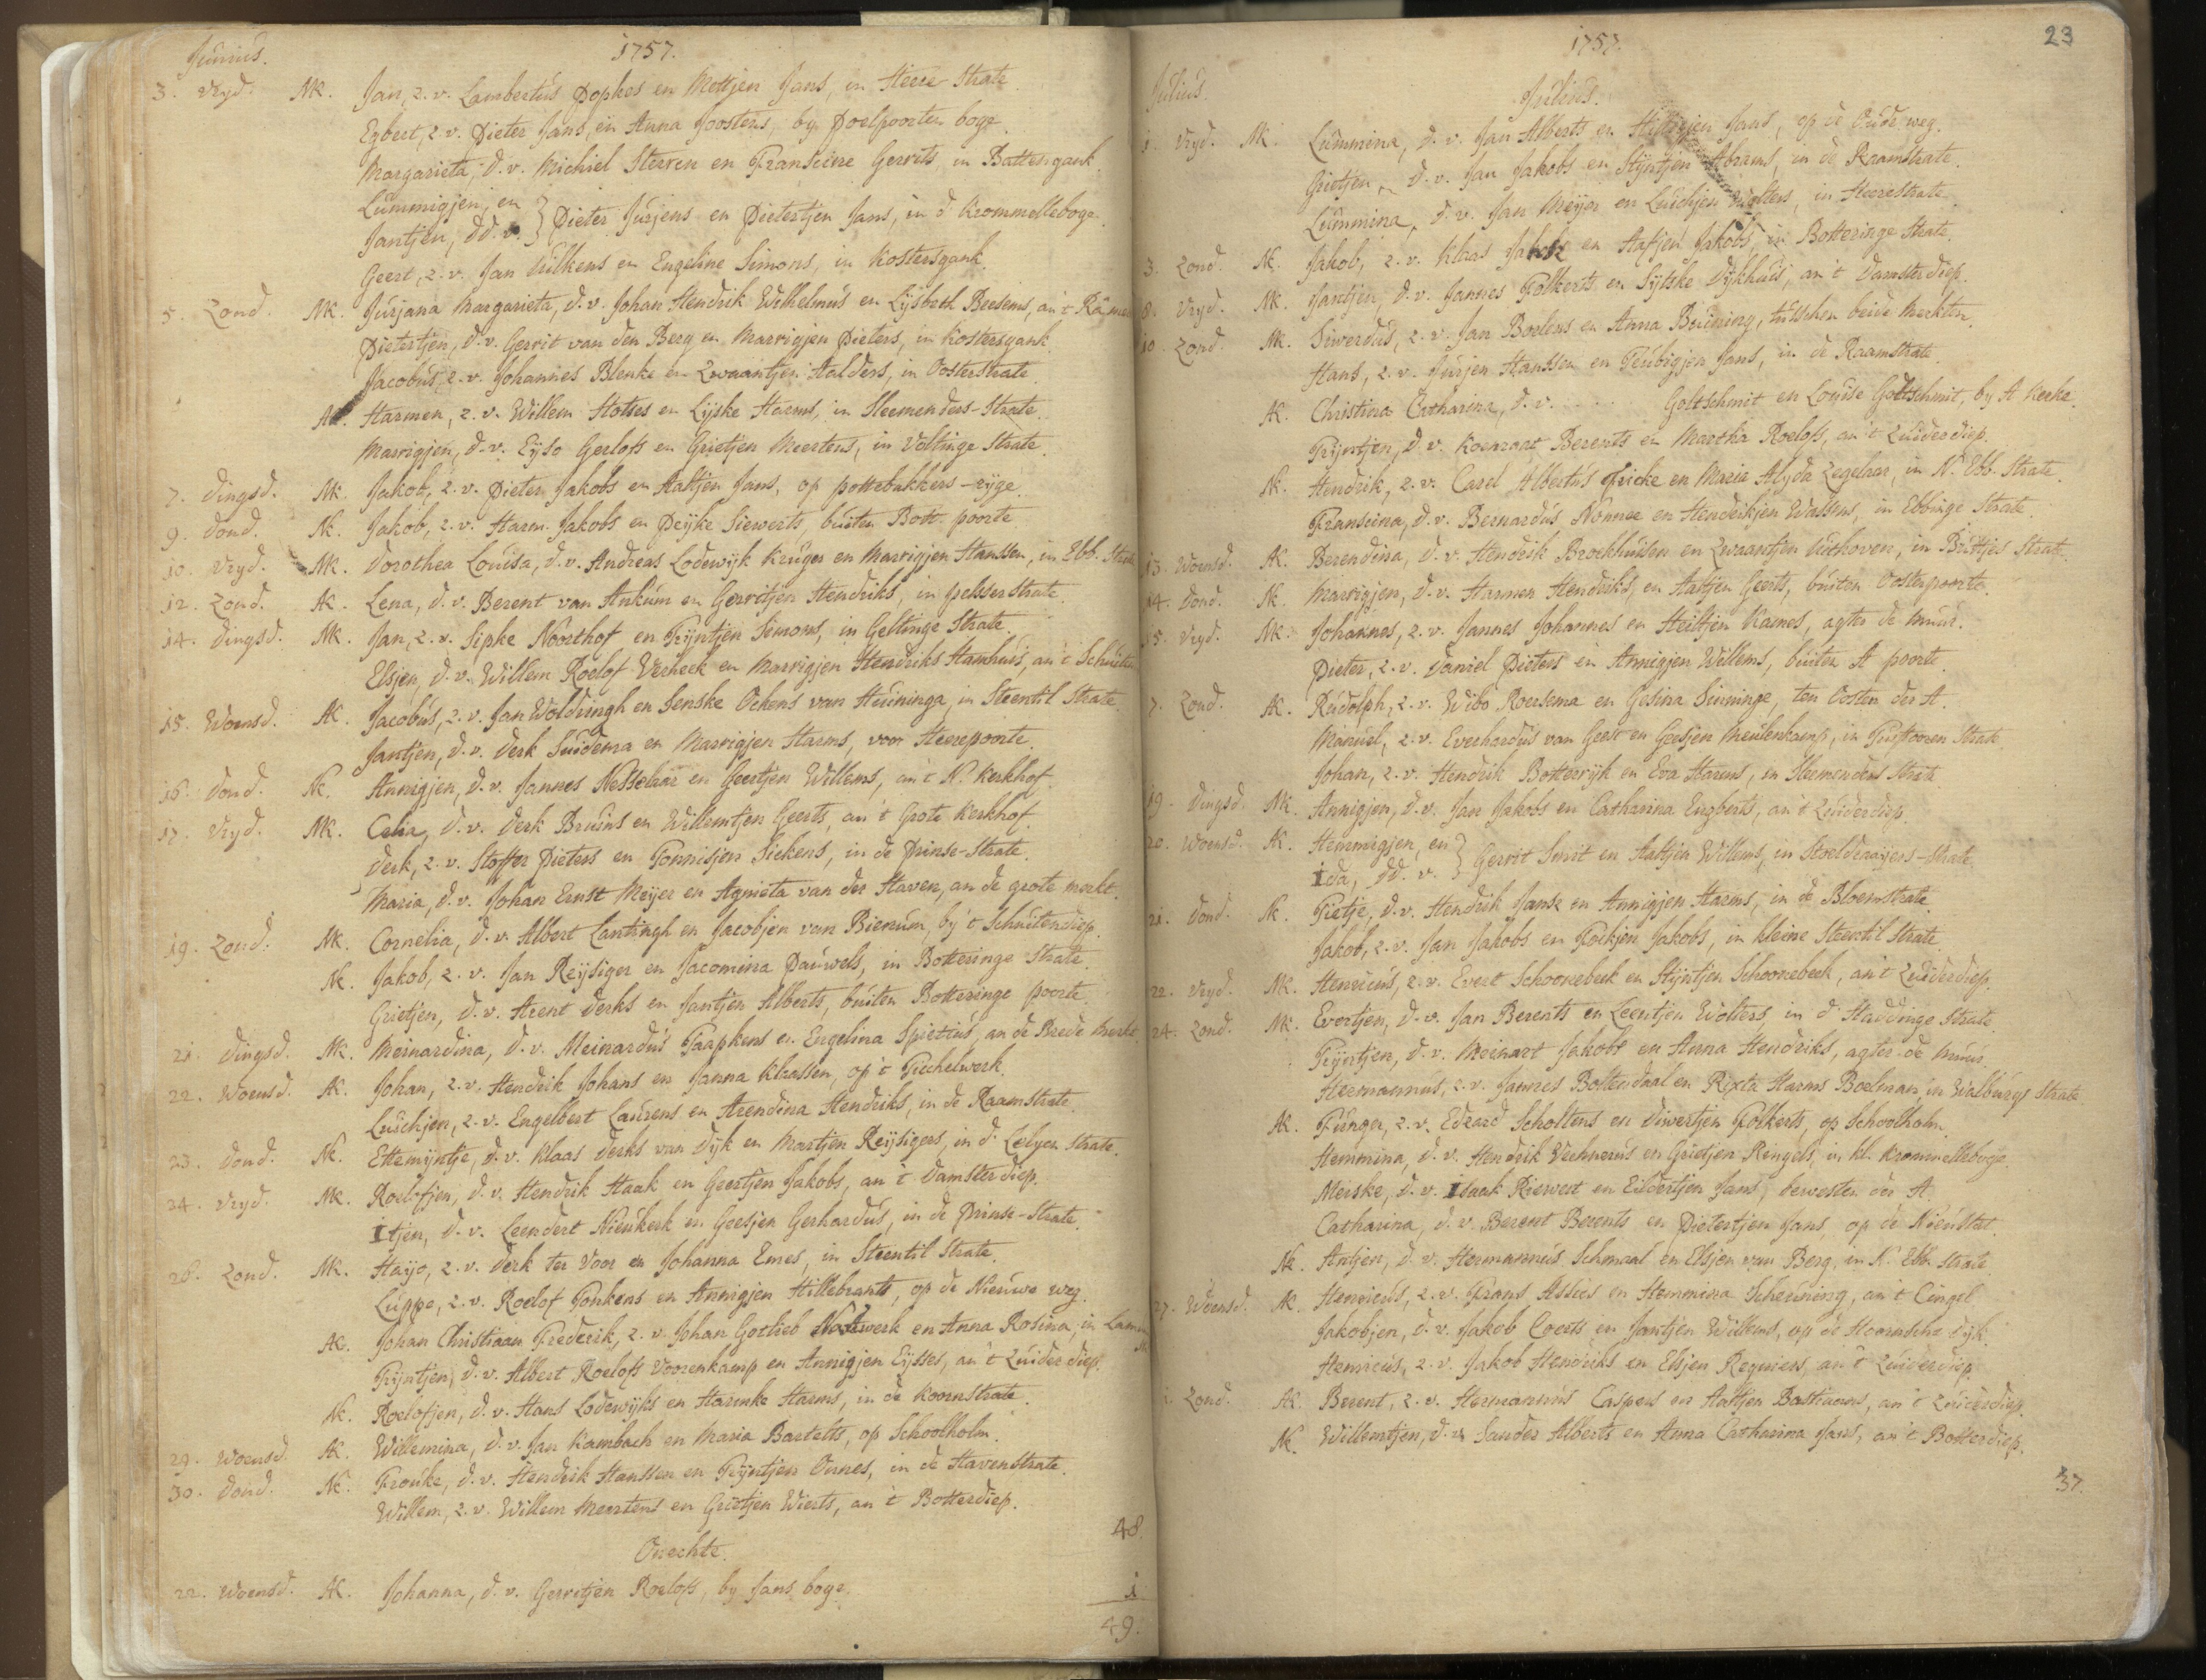 Junius.
1757.
3. Vryd. MK. Jan, z. v. Lambertus Popkes en Mettjen Jans, in Heere Strate.
Egbert, z. v. Pieter Jans, en Anna Joostens, by Poelpoorten boge.
Margarieta, d. v. Michiel Sterren en Fransiene Gerrits, in Battengank.
Lummigjen, en
Jantjen, dd. v. } Pieter Jurjens en Pietertjen Jans, in d' Krommelleboge.
Geert, z. v. Jan Wilkens en Engeline Simons, in Kostersgank.
5. Zond. MK. Jurjana Margarieta, d. v. Johan Hendrik Wilhelmus en Lijsbeth Beesems, an 't
Pietertjen, d. v. Gerrit van den Berg en Marrigjen Pieters, in Kostersgank.
Jacobus, z. v. Johannes Blenke en Zwaantjen Aalders, in Oosterstrate.
AK. Harmen, z. v. Willem Hottes en Lijske Harms, in Sleemenders-Strate.
Marrigjen, d. v. Eyso Gerlofs en Grietjen Meertens, in Voltinge Strate.
7. Dingsd. MK. Jakob, z. v. Pieter Jakobs en Aaltjen Jans, op pottebakkers-ryge.
9. Dond. NK. Jakob, z. v. Harm. Jakobs en Peijke Siewerts, buiten Bott. poorte.
10. Vryd. MK. Dorothea Louisa, d. v. Andreas Lodewijk Kruger en Marrigjen Hanssen, in Ebb. Strate
12. Zond. AK. Lena, d. v. Berent van Ankum en Gerritjen Hendriks, in pelsserstrate.
14. Dingsd. MK. Jan, z. v. Sipke Noorthof en Trijntjen Simons, in Geltinge Strate.
Elsjen, d. v. Willem Roelof Verheek en Marrigjen Hendriks Hamhuis, an 't
15. Woensd. AK. Jacobus, z. v. Jan Woldringh en Senske Ockens van Heuninga, in Steentil Strate
Jantjen, d. v. Derk Suidema en Marrigjen Harms, voor Heerepoorte.
16. Dond. NK. Annigjen, d. v. Jannes Nesselaar en Geertjen Willems, an 't N. Kerkhof.
17. Vryd. MK. Celia, d. v. Derk Bruins en Willemtjen Geerts, an 't Grote Kerkhof.
Derk, z. v. Stoffer Pieters en Tonnisjen Siekens, in de Prinse-Strate.
Maria, d. v. Johan Ernst Meyer en Agnieta van der Haven, an de grote merkt.
19. Zond. MK. Cornelia, d. v. Albert Lantingh en Jacobjen van Bierum, by 't Schuitendiep.
NK. Jakob, z. v. Jan Reysiger en Jacomina Pauwels, in Botteringe-Strate.
Grietjen, d. v. Arent Derks en Jantjen Alberts, buiten Botteringe poorte.
21. Dingsd. MK. Meinardina, d. v. Meinardus Taapkens en Engelina Spiettius, an de Brede Merkt.
22. Woensd. AK. Johan, z. v. Hendrik Johans en Janna Klaassen, op 't Tichelwerk.
Luichjen, z. v. Engelbert Laurens en Arendina Hendriks, in de Raamstrate.
23. Dond. NK. Ettemijntje, d. v. Klaas Derks van Dijk en Martjen Reijsigers, in d' Lelyen Strate.
24. Vryd. MK. Roelofjen, d. v. Hendrik Haak en Geertjen Jakobs, an 't Damsterdiep.
Itjen, d. v. Leendert Nieukerk en Geesjen Gerhardus, in de Prinse-Strate.
26. Zond. MK. Hayo, z. v. Derk ter Voor en Johanna Emes, in Steentil Strate.
Luppo, z. v. Roelof Tonkens en Annigjen Hillebrants, op de Nieuwe weg.
AK. Johan Christiaan Frederik, z. v. Johan Gotlieb en Anna Rosina, in
Trijntjen, d. v. Albert Roelofs Voorenkamp en Annigjen Eijsses, an 't Zuiderdiep.
NK. Roelofjen, d. v. Hans Lodewijks en Harmke Harms, in de Koornstrate.
29. Woensd. AK. Willemina, d. v. Jan Kambach en Maria Bartelts, op Schoolholm.
30. Dond. NK. Frouke, d. v. Hendrik Hanssen en Trijntjen Onnes, in de Havenstrate.
Willem, z. v. Willem Meertens en Grietjen Wierts, an 't Botterdiep.
48.
Onechte.
22. Woensd. AK. Johanna, d. v. Gerritjen Roelofs, by Jans boge.
1
49.
23
1757.
Julius.
Julius.
1. Vryd. MK. Lummina, d. v. Jan Alberts en Jans, op de Oude weg.
Grietjen, d. v. Jan Jakobs en Stijntjen Abrams, in de Raamstrate.
Lummina, d. v. Jan Meyer en Luichjen Wolters, in Heerestrate.
3. Zond. NK. Jakob, z. v. Klaas Jakobs en Aafjen Jakobs, in Botteringe Strate.
8. Vryd. MK. Jantjen, d. v. Jannes Folkerts en Sytske Dijkhuis, an 't Damsterdiep.
10. Zond. MK. Siwerdus, z. v. Jan Boelens en Anna Beuning, tusschen beide Merkten.
Hans, z. v. Jurjen Hanssen en Teubigjen Jans, in de Raamstrate.
AK. Christina Catharina, d. v. ..... Goltschmit en Louise Goltschmit, by A Kerke.
Trijntjen, d. v. Koenraat Berents en Martha Roelofs, an 't Zuiderdiep.
NK. Hendrik, z. v. Carel Albertus Fricke en Maria Alyda Zegelaar, in N. Ebb. Strate.
Fransina, d. v. Bernardus Nonner en Henderikjen Wassens, in Ebbinge Strate.
13. Woensd. AK. Berendina, d. v. Hendrik Brockhuisen en Zwaantjen Uithoven, in Bruttjes Strate.
14. Dond. NK. Marrigjen, d. v. Harmen Hendriks en Aaltjen Geerts, buiten Oosterpoorte.
15. Vryd. MK. Johannes, z. v. Jannes Johannes en Heiltjen Karnes, agter de Muur.
Pieter, z. v. Daniel Pieters en Annigjen Willems, buiten A poorte.
7. Zond. AK. Rudolph, z. v. Wibo Roersema en Gesina Sinninge, ten Oosten der A.
Manuel, z. v. Everhardus van Geest en Geesjen Meulenkamp, in Strate
Johan, z. v. Hendrik Botterryk en Eva Harms, in Sleemenders Strate
19. Dingsd. MK. Annigjen, d. v. Jan Jakobs en Catharina Engberts, an 't Zuiderdiep.
20. Woensd. AK. Hemmigjen, en
Ida, dd. v. } Gerrit Smit en Aaltjen Willems, in Stoeldraayers-Strate.
21. Dond. NK. Pietje, d. v. Hendrik Janse en Annigjen Harms, in de Bloemstrate.
Jakob, z. v. Jan Jakobs en Fokjen Jakobs, in kleine Steentil Strate.
22. Vryd. MK. Henricus, z. v. Evert Schoonebeek en Stijntjen Schoonebeek, an 't Zuiderdiep.
24. Zond. MK. Evertjen, d. v. Jan Berents en Leentjen Wolters, in d' Haddinge Strate.
Trijntjen, d. v. Meinart Jakobs en Anna Hendriks, agter de Muur.
Hermannus, z. v. Jannes Bottendaal en Rixta Harms Boelman, in Walburgs Strate
AK. Funger, z. v. Edzard Scholtens en Diwertjen Folkerts, op Schoolholm.
Hemmina, d. v. Hendrik Vechnerus en Grietjen Ringels, in kl. Krommelleboge.
Meiske, d. v. Isaak Riewert en Eildertjen Jans, bewesten der A.
Catharina, d. v. Berent Berents en Pietertjen Jans, op de Nieustat.
NK. Antjen, d. v. Hermannus Schmaal en Elsjen van Berg, in N. Ebb. Strate.
27. Woensd. AK. Henricus, z. v. Frans Assies en Hemmina Scheuning, an 't Cingel
Jakobjen, d. v. Jakob Coerts en Jantjen Willems, op de Hoornsche Dijk.
Henricus, z. v. Jakob Hendriks en Elsjen Regniers, an 't Zuiderdiep.
Zond. AK. Berent, z. v. Hermannus Caspers en Aaltjen Bastiaans, an 't Zuiderdiep.
NK. Willemtjen, d. v. Sander Alberts en Anna Catharina Jans, an 't Botterdiep.
37.